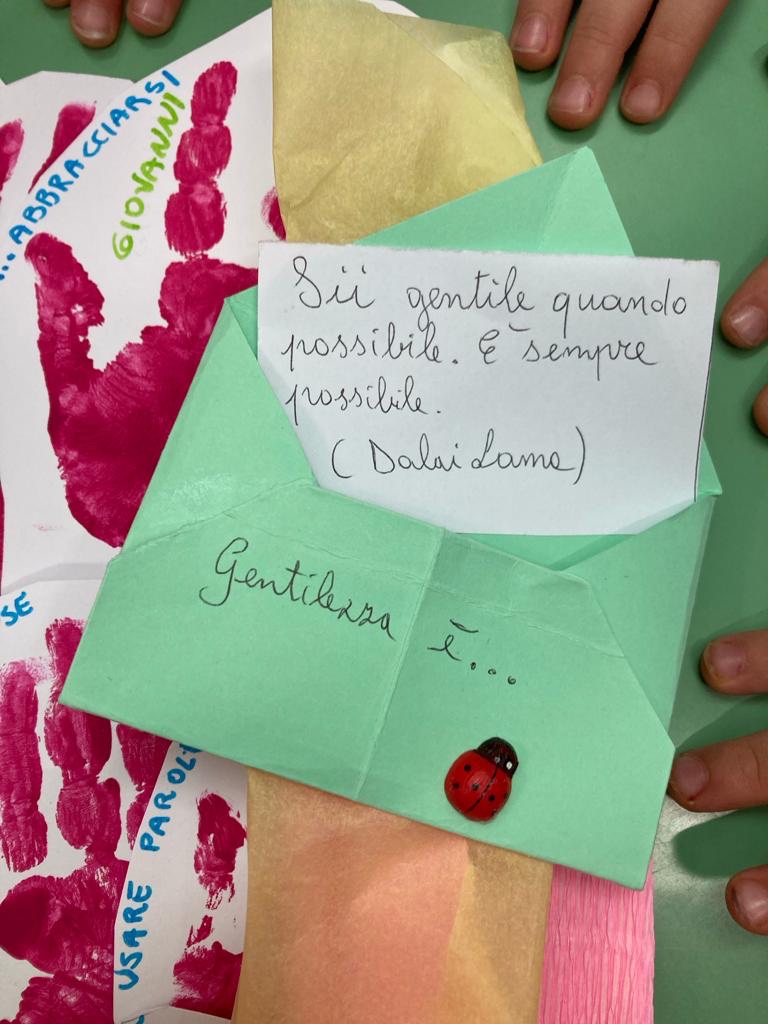 ...ABBRACCIARSI
GIOVANNI
Sii gentile quando
possibile. È sempre
possibile.
(Dalai Lama)
Gentilezza è...
SE
USARE PAROLE